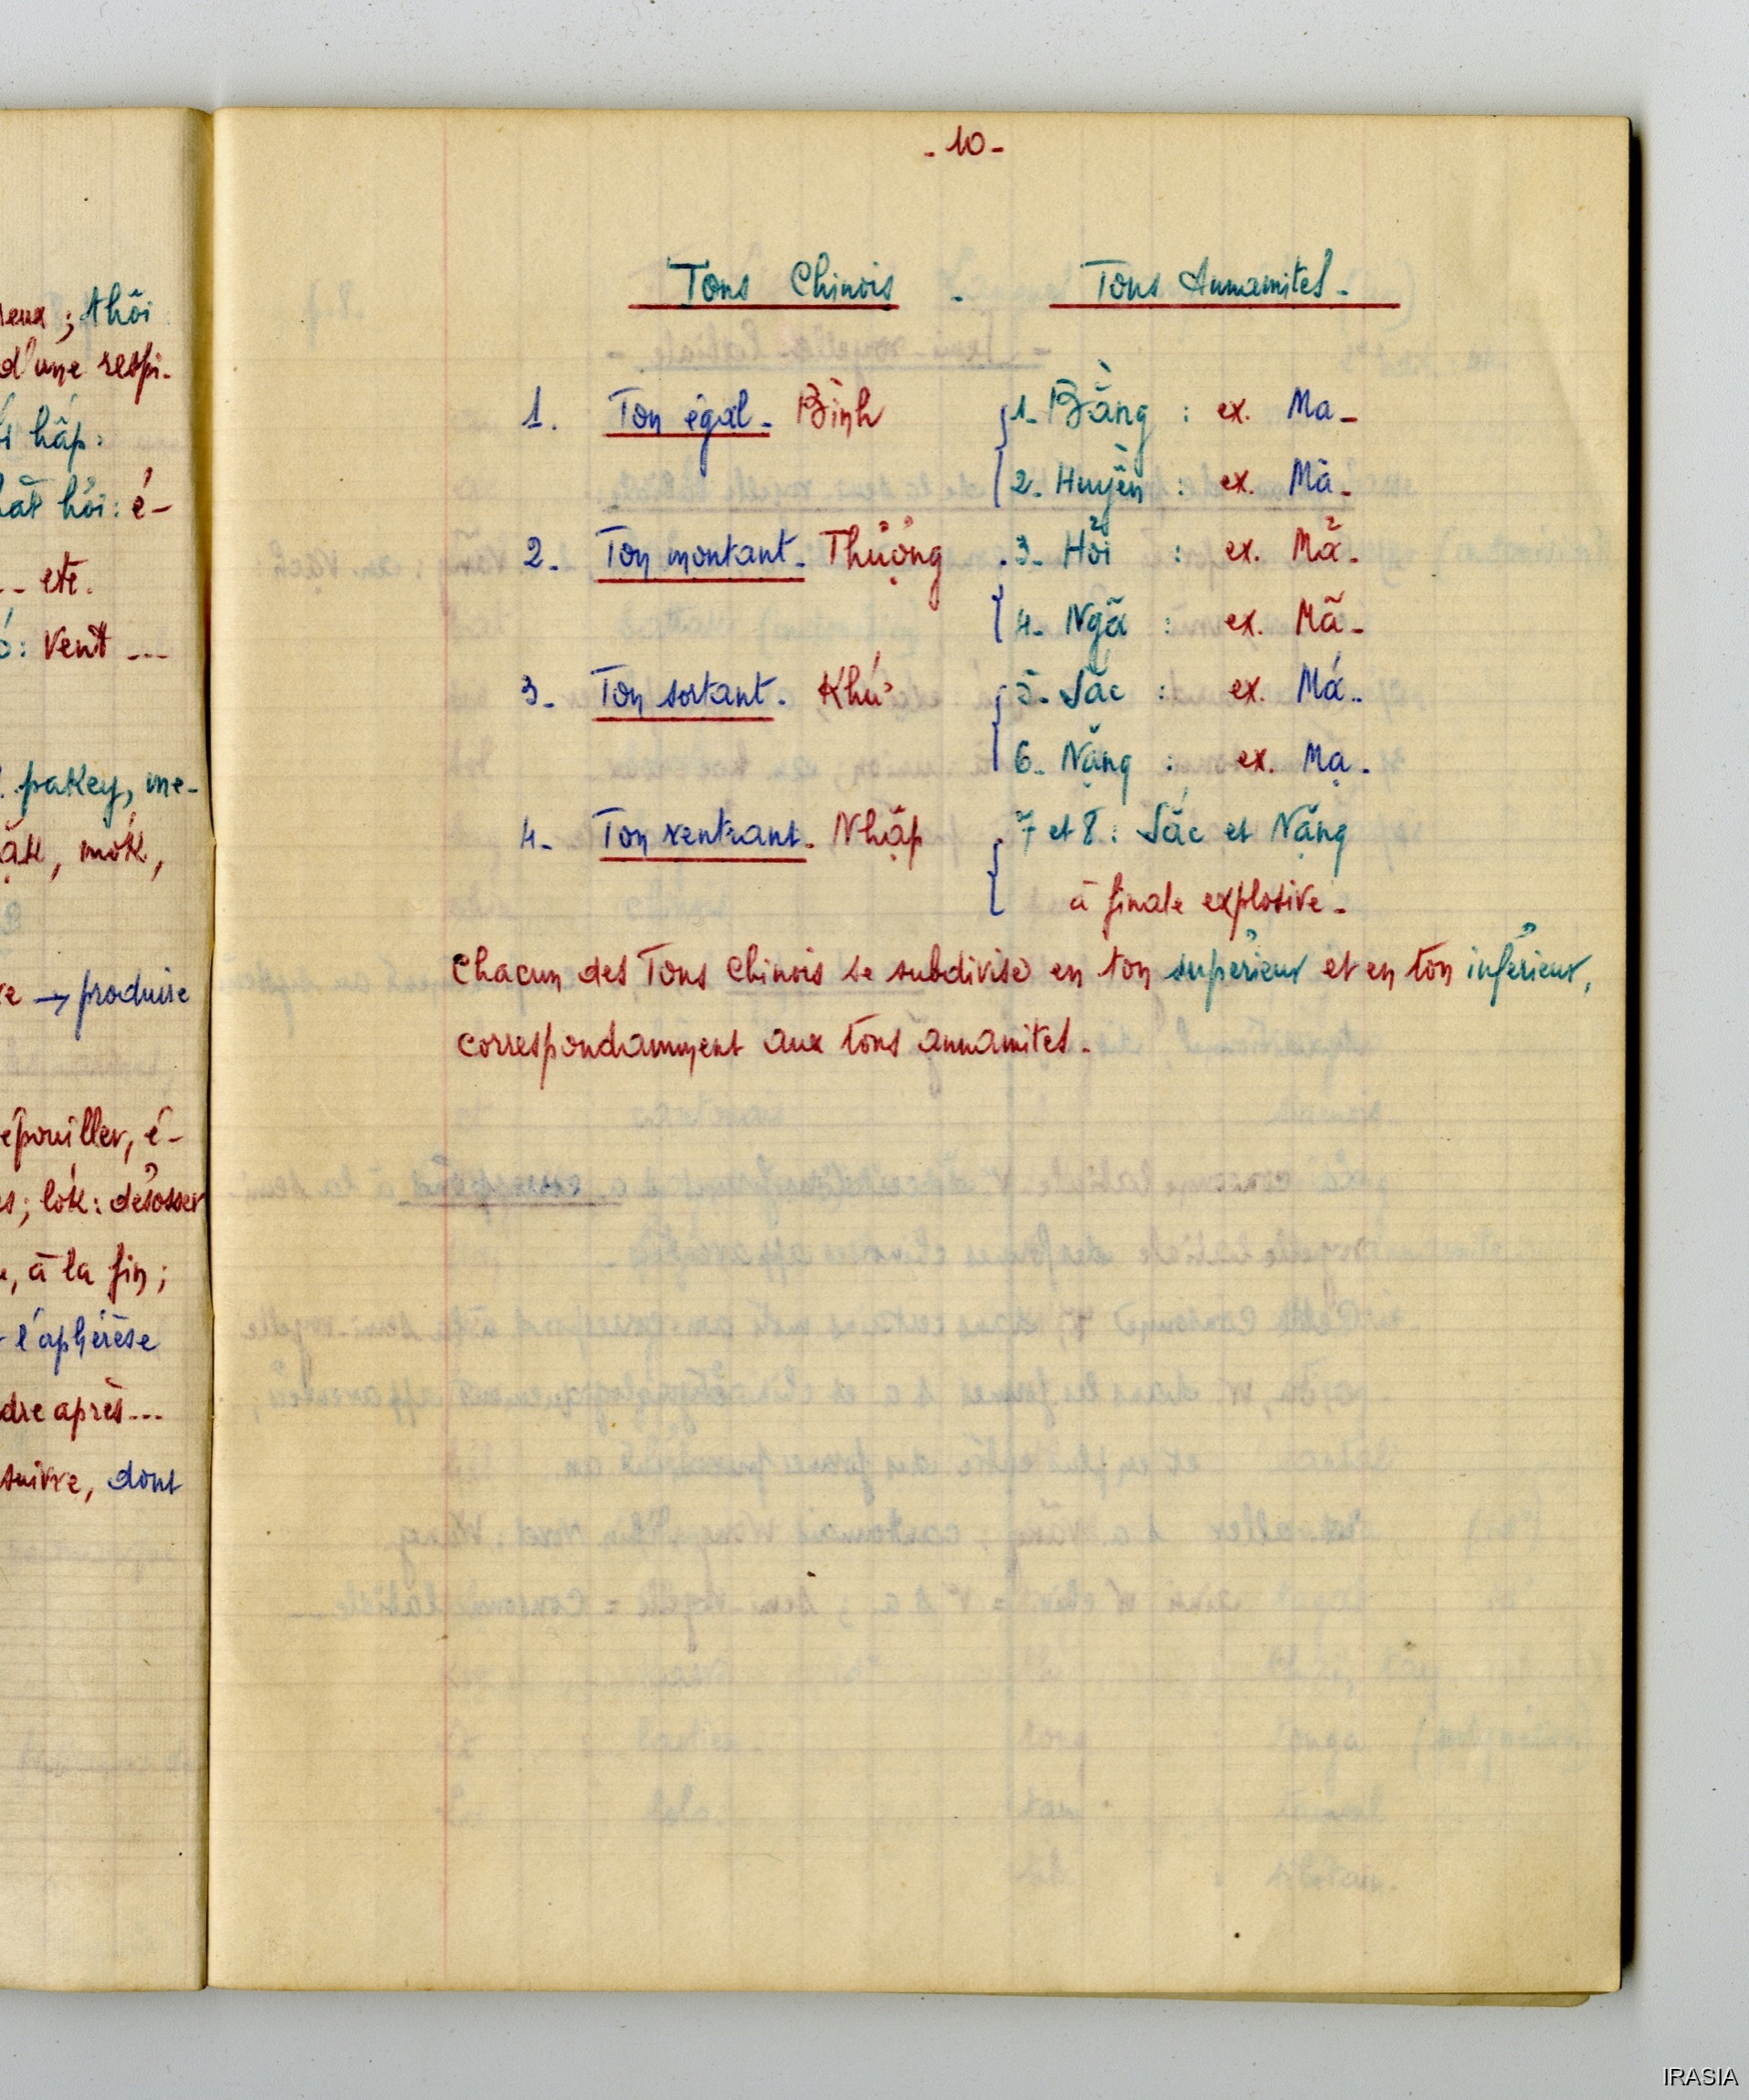 reux ; thôi
d'une respi-
hấp :
hơi : é-
-- etc.
ó : vent ---
pakey, me-
mók,
→ produire
épouiller, é-
lók : désosser
à la fin ;
l'aphérèse
dre après ---
suivre, dont
- 10 -
Tons Chinois - Tons Annamites -
1. Ton égal - Bình { 1- Bằng : ex. Ma -
2- Huyền : ex. Mà -
2- Ton montant - Thượng { 3- Hỏi : ex. Mả -
4- Ngã : ex. Mã -
3- Ton sortant - Khứ { 5- Sắc : ex. Má -
6- Nặng : ex. Mạ -
4- Ton rentrant - Nhập { 7 et 8 : Sắc et Nặng
à finale explosive -
Chacun des Tons Chinois se subdivise en ton supérieur et en ton inférieur,
correspondamment aux tons annamites -
IRASIA